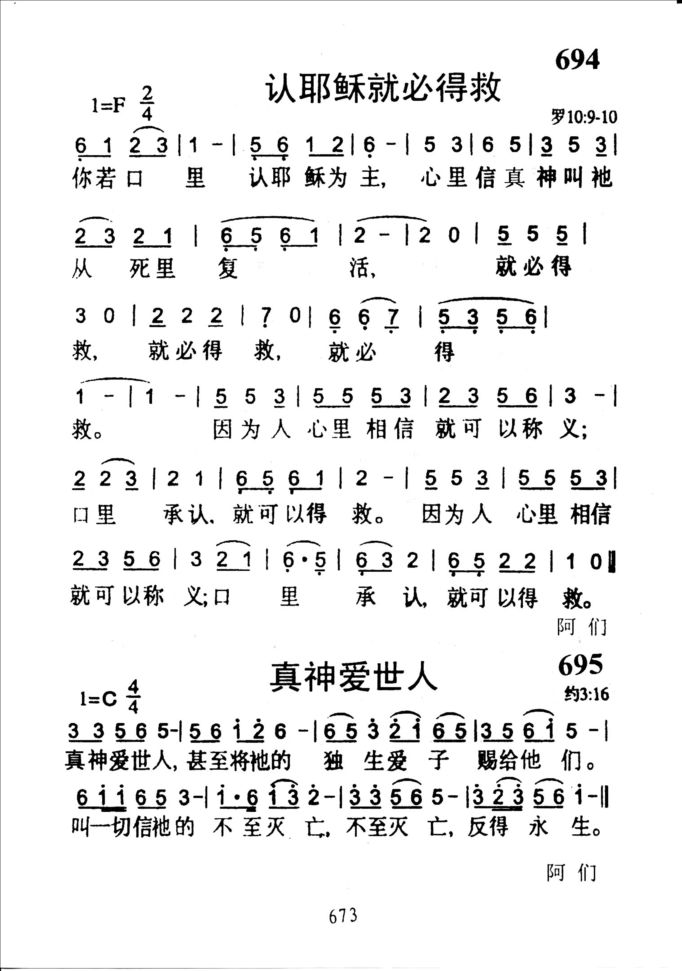 694
认耶稣就必得救
1=F 2/4
罗10:9-10
6 1 2 3 | 1 - | 5 6 1 2 | 6 - | 5 3 | 6 5 | 3 5 3 |
你若口 里 认耶稣为主, 心里信真神叫祂
2 3 2 1 | 6 5 6 1 | 2 - | 2 0 | 5 5 5 |
从 死里 复 活, 就必得
3 0 | 2 2 2 | 7 0 | 6 6 7 | 5 3 5 6 |
救, 就必得 救, 就必 得
1 - | 1 - | 5 5 3 | 5 5 5 3 | 2 3 5 6 | 3 - |
救。 因为人心里相信就可以称义;
2 2 3 | 2 1 | 6 5 6 1 | 2 - | 5 5 3 | 5 5 5 3 |
口里 承认,就可以得 救。 因为人 心里相信
2 3 5 6 | 3 2 1 | 6 · 5 | 6 3 2 | 6 5 2 2 | 1 0 ‖
就可以称 义;口 里 承 认,就可以得 救。
阿们
695
真神爱世人
1=C 4/4
约3:16
3 3 5 6 5 - | 5 6 i 2 6 - | 6 5 3 2 i 6 5 | 3 5 6 i 5 - |
真神爱世人,甚至将祂的 独 生爱 子 赐给他 们。
6 i i 6 5 3 - | i · 6 i 3 2 - | 3 3 5 6 5 - | 3 2 3 5 6 i - ‖
叫一切信祂的 不至灭 亡,不至灭 亡,反得 永 生。
阿们
673